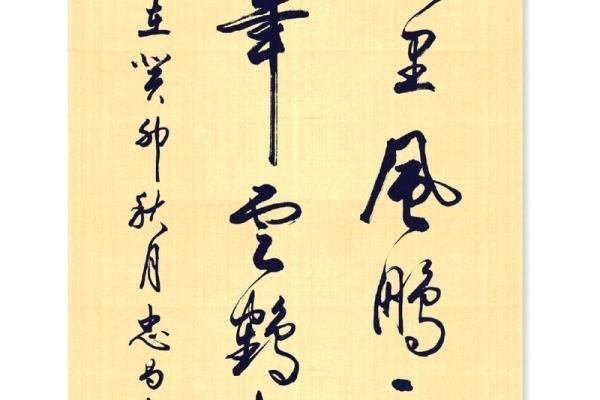 里風鵬
年雲鶴
在癸卯秋月忠昌